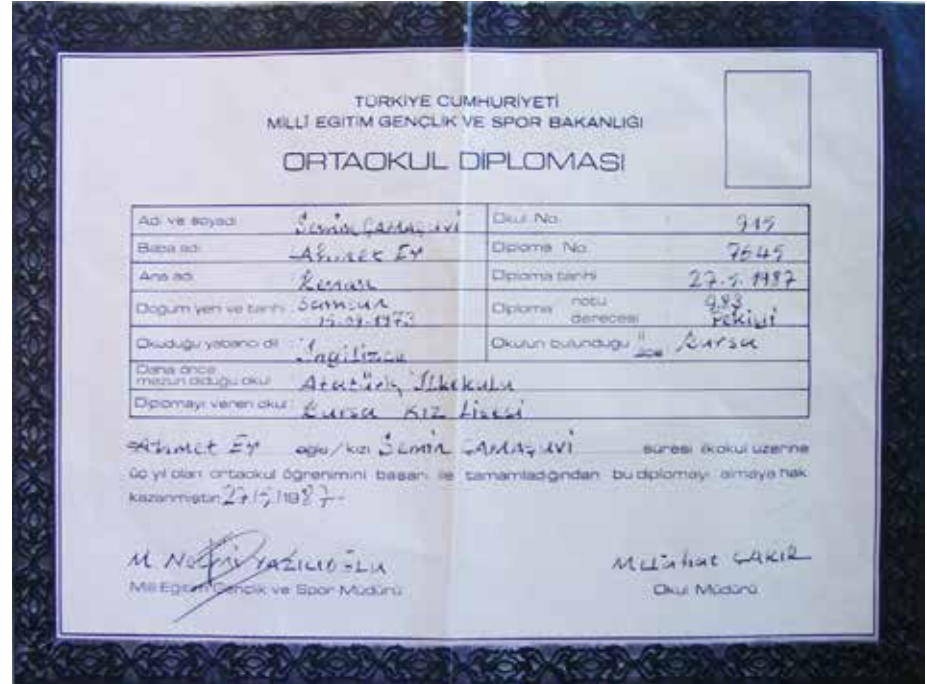 TÜRKİYE CUMHURİYETİ
MİLLÎ EĞİTİM GENÇLİK VE SPOR BAKANLIĞI
ORTAOKUL DİPLOMASI
Adı ve soyadı
Okul No. 915
Baba adı Ahmet
Diploma No. 7645
Ana adı Kenan
Diploma tarihi 27.5.1987
Doğum yeri ve tarihi Samsun
Diploma notu derecesi 9.83 Pekiyi
Okuduğu yabancı dil İngilizce
Okulun bulunduğu il Bursa
Daha önce mezun olduğu okul Atatürk İlkokulu
Diplomayı veren okul Bursa Kız Lisesi
Ahmet oğlu/kızı süresi ilkokul üzerine
üç yıl olan ortaokul öğrenimini başarı ile tamamladığından bu diplomayı almaya hak
kazanmıştır. 27/5/1987
M. YAZICIOĞLU
ÇAKIR
Milli Eğitim Gençlik ve Spor Müdürü
Okul Müdürü